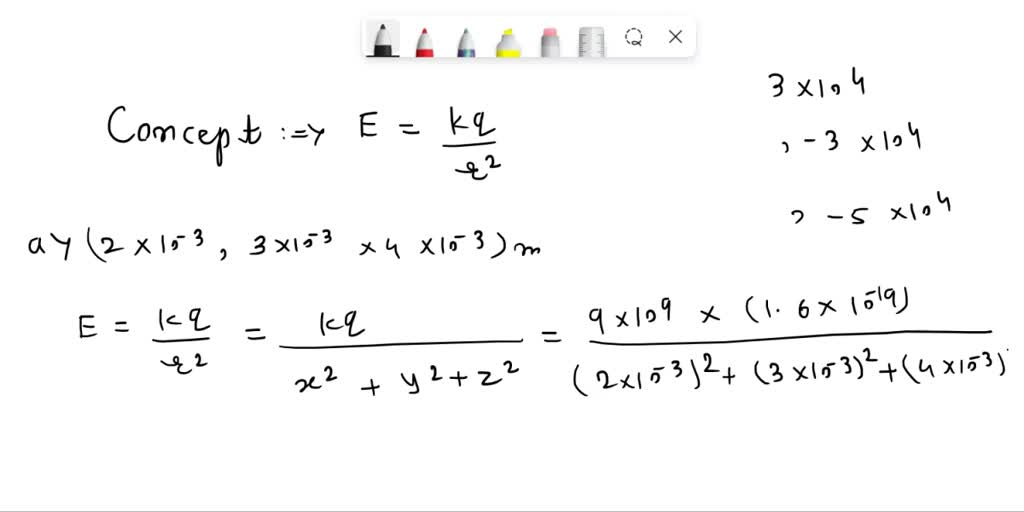 3 × 10^4
Concept :=> E = kq / r^2
, -3 × 10^4
, -5 × 10^4
a) (2 × 10^-3, 3 × 10^-3 × 4 × 10^-3) m
E = kq / r^2 = kq / x^2 + y^2 + z^2 = 9 × 10^9 × (1.6 × 10^-19) / (2 × 10^-3)^2 + (3 × 10^-3)^2 + (4 × 10^-3)